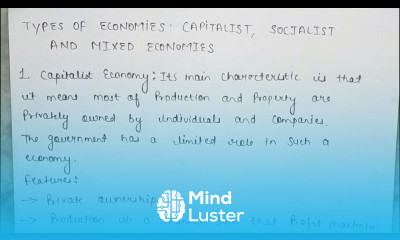 TYPES OF ECONOMIES: CAPITALIST, SOCIALIST
AND MIXED ECONOMIES
1. Capitalist Economy: Its main characteristic is that
it means most of Production and Property are
Privately owned by individuals and companies.
The government has a limited role in such a
economy.
Features:
→ Private ownership
→ Production that Profit
Mind
Luster